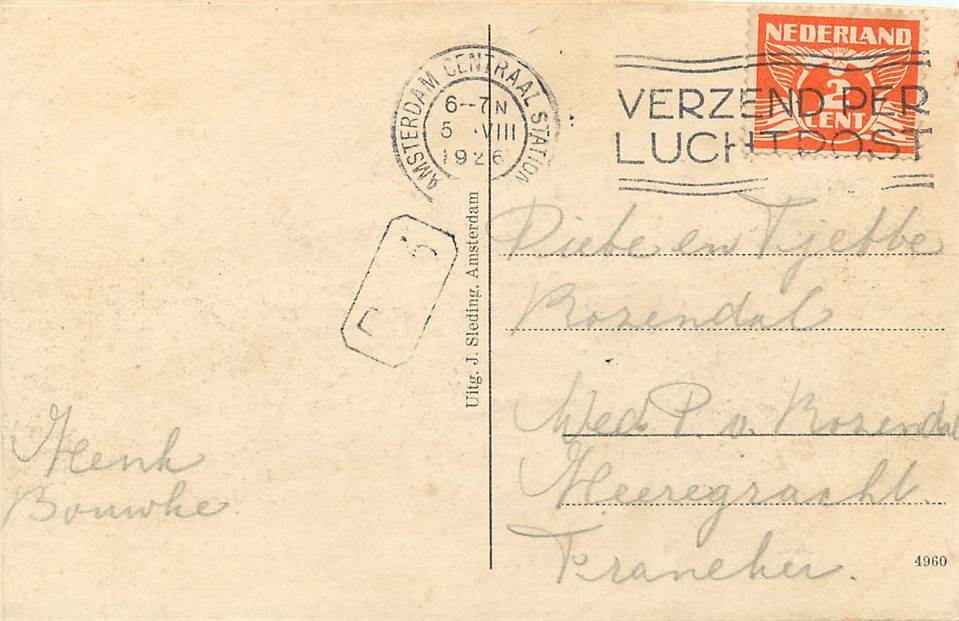 NEDERLAND
2
CENT
AMSTERDAM CENTRAAL STATION
6--7N
6 VIII
1926
VERZEND PER
LUCHTPOST
Uitg. J. Sleding, Amsterdam
Piebe en Tjebbe
Rozendal
Wed P. v. Rozendal
Heeregracht.
Franeker.
Henk
Bouwke
4960